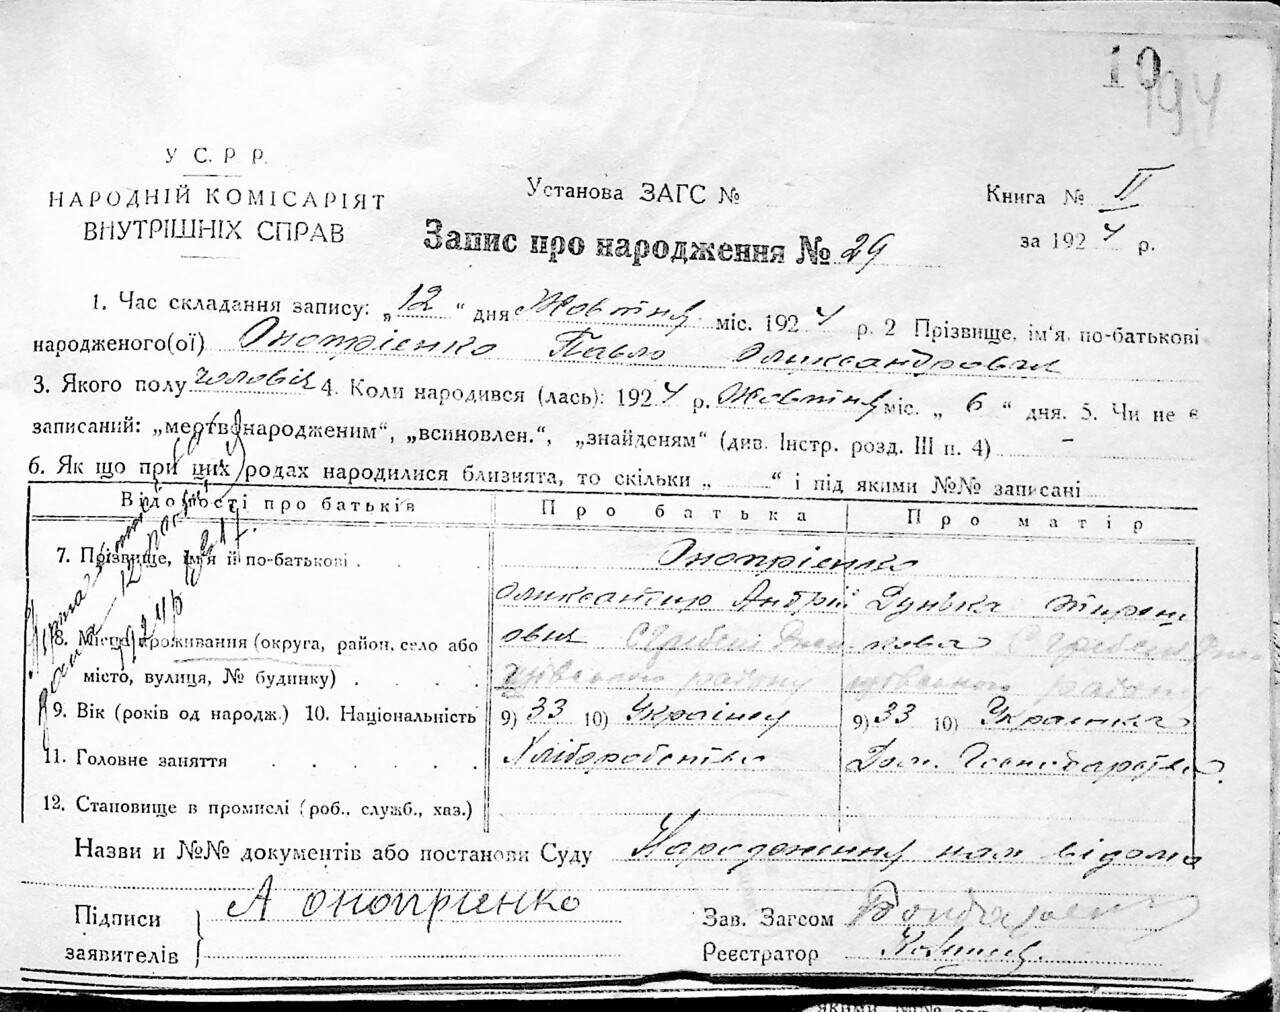 10
194
У С. Р Р.
НАРОДНІЙ КОМІСАРІЯТ
ВНУТРІШНІХ СПРАВ
Установа ЗАГС №
Книга № II
за 1924 р.
Запис про народження № 29
1. Час складання запису: „12“ дня Жовтня міс. 1924 р. 2 Прізвище, ім'я, по-батькові
народженого(ої) Онопрієнко Павло Олександрович
3. Якого полу чоловік 4. Коли народився (лась): 1924 р. Жовтня міс. „6“ дня. 5. Чи не є
записаний: „мертвонародженим“, „всиновлен.“, „знайденям“ (див. Інстр. розд. III п. 4) –
6. Як що при цих родах народилися близнята, то скільки „ “ і під якими №№ записані
Відомості про батьків
Про батька
Про матір
7. Прізвище, ім'я й по-батькові . .
Онопрієнко
Андрій Дунька
8. Місце проживання (округа, район, село або
місто, вулиця, № будинку) . . . .
району району
9. Вік (років од народж.) 10. Національність
9) 33 10) Українец 9) 33 10) Українка
11. Головне заняття . . . . .
Хліборобство Дом. Господарство
12. Становище в промислі (роб., служб., хаз.)
Назви и №№ документів або постанови Суду Народження нам відомо
Підписи
заявителів
А Онопрієнко
Зав. Загсом
Реєстратор